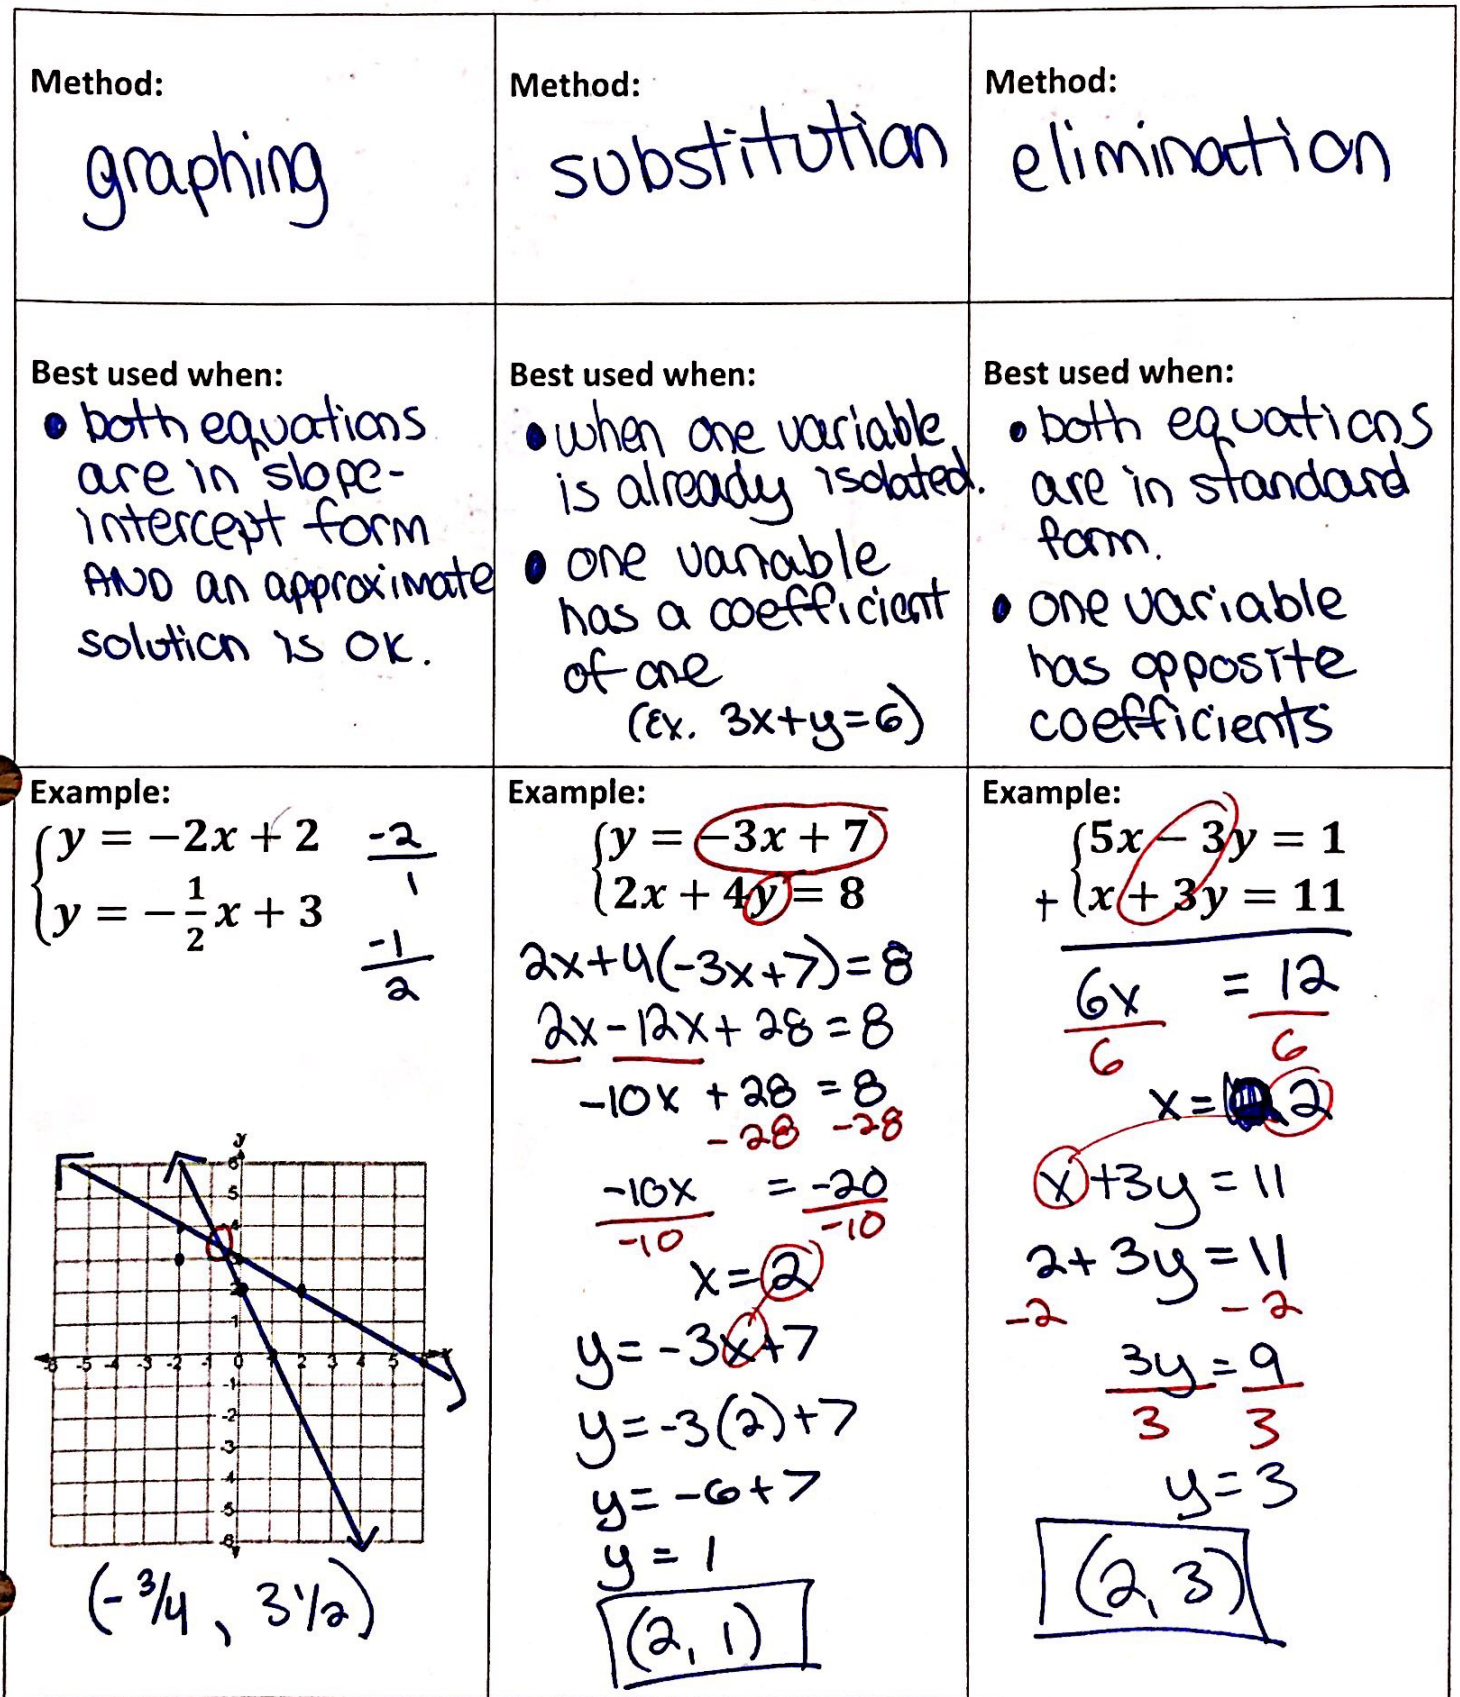 Method:
graphing
Best used when:
• both equations
are in slope-
intercept form
AND an approximate
solution is OK.
Example:
y = −2x + 2
-2/1
y = −1/2 x + 3
-1/2
y
6
5
4
3
2
1
-6 -5 -4 -3 -2 -1 0 1 2 3 4 5 x
-1
-2
-3
-4
-5
-6
(-3/4, 3 1/2)
Method:
substitution
Best used when:
• when one variable
is already isolated.
• one variable
has a coefficient
of one
(Ex. 3x+y=6)
Example:
y = −3x + 7
2x + 4y = 8
2x+4(-3x+7)=8
2x-12x+28=8
-10x +28 =8
-28 -28
-10x = -20
-10 -10
x=2
y=-3x+7
y=-3(2)+7
y=-6+7
y=1
(2, 1)
Method:
elimination
Best used when:
• both equations
are in standard
form.
• one variable
has opposite
coefficients
Example:
5x − 3y = 1
+ x + 3y = 11
6x = 12
6 6
x= 2
x+3y=11
2+3y=11
-2 -2
3y=9
3 3
y=3
(2, 3)